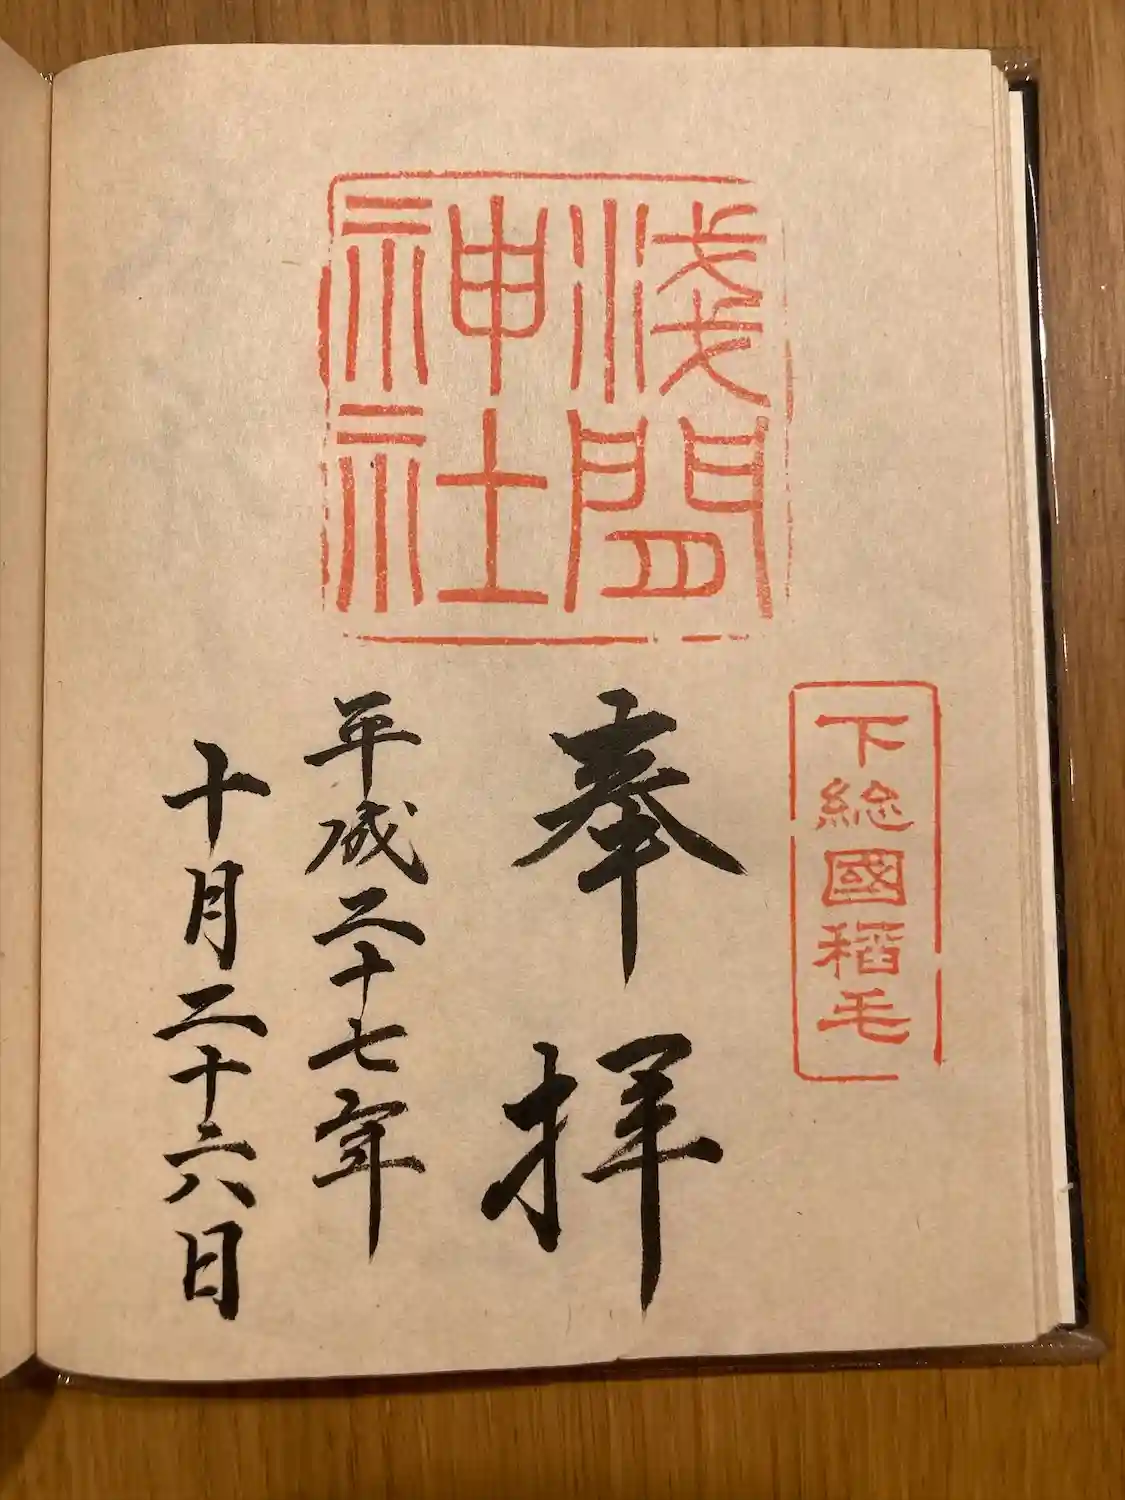 下総國稻毛
淺間
神社
奉拝
平成二十七年
十月二十六日